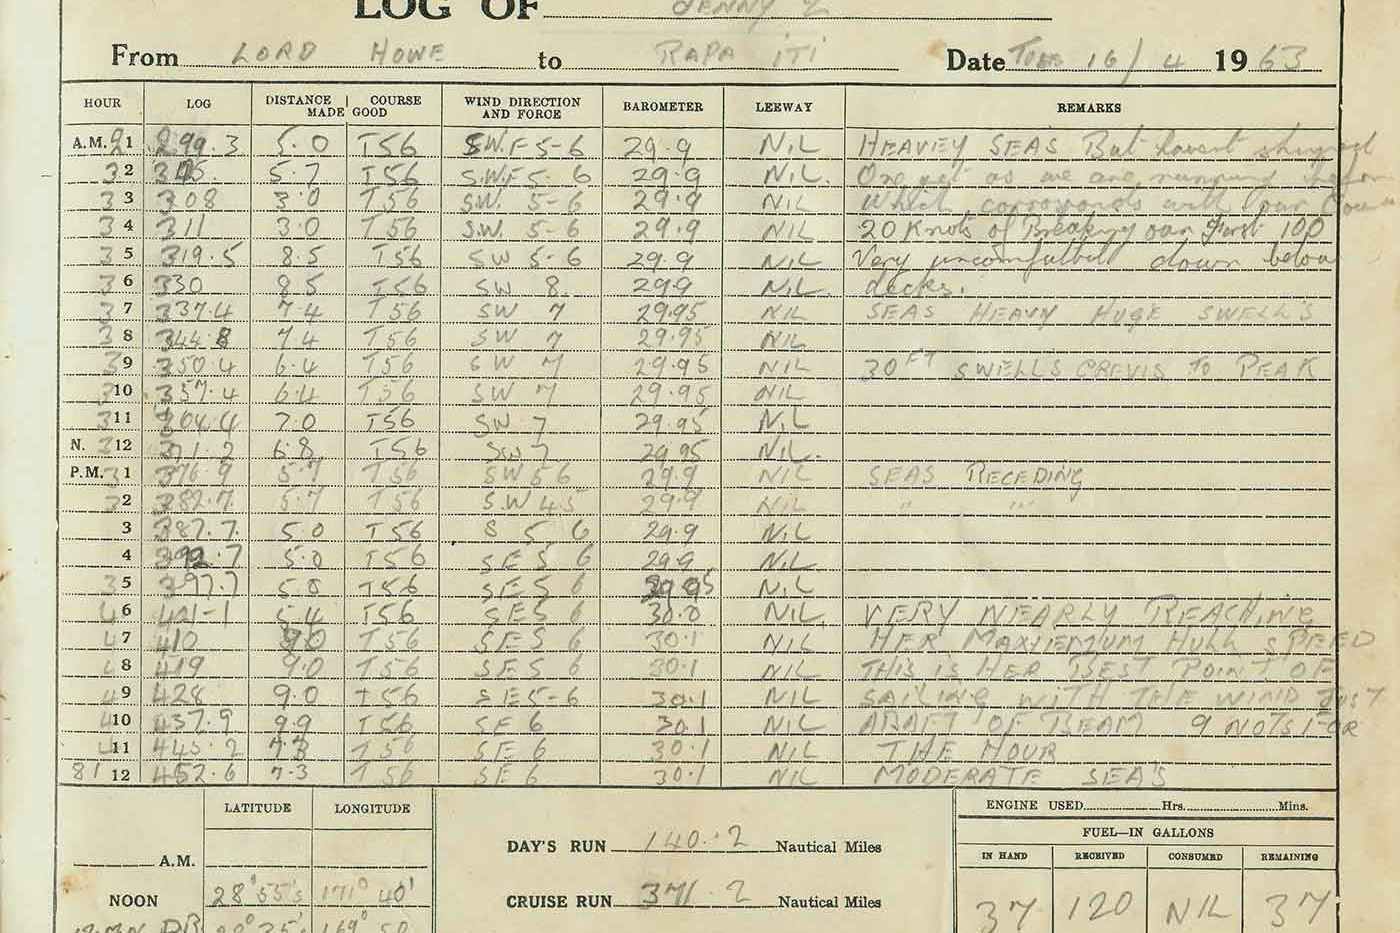 LOG OF JENNY 2
From LORD HOWE to RAPA ITI Date TUES 16/4 1963
HOUR LOG DISTANCE MADE GOOD COURSE WIND DIRECTION AND FORCE BAROMETER LEEWAY REMARKS
A.M. 1 299.3 5.0 T56 S.W.F 5-6 29.9 NiL HEAVEY SEAS But havent shipped
2 5.7 T56 S.W.F5- 6 29.9 NiL. One yet as we are running before
3 308 3.0 T56 S.W. 5-6 29.9 NiL Which corrosponds with our
4 311 3.0 T56 S.W. 5-6 29.9 NiL 20 Knots of Breaking our First 100
5 319.5 8.5 T56 SW 5-6 29.9 NiL Very uncomfutbel down below
6 330 8.5 T56 SW 8 29.9 NiL. decks.
7 337.4 7.4 T56 SW 7 29.95 NIL SEAS HEAVY HUGE SWELL'S
8 344.8 7.4 T56 SW 7 29.95 NIL
9 350.4 6.4 T56 SW 7 29.95 NIL 30 FT SWELLS CREVIS TO PEAK
10 357.4 6.4 T56 SW 7 29.95 NIL
11 364.4 7.0 T56 SW 7 29.95 NiL
N. 12 371.2 6.8 T56 SW 7 29.95 NiL.
P.M. 1 376.9 5.7 T56 SW 5 6 29.9 NIL SEAS RECEDING
2 382.7. 5.7 T56 S.W 4 5 29.9 NIL " "
3 387.7. 5.0 T56 S 5 6 29.9 NiL
4 392.7 5.0 T56 SE 5 6 29.9 NiL
5 397.7 5.0 T56 SE 5 6 29.95 NiL
6 401-1 5.4 T56 SE 5 6 30.0 NIL VERY NEARLY REACHING
7 410 9.0 T56 SE 5 6 30.1 NIL HER MAXIEMUM HULL SPEED
8 419 9.0 T56 SE 5 6 30.1 NIL THIS IS HER BEST POINT OF
9 428 9.0 T56 SE 5-6 30.1 NIL SAILING WITH THE WIND JUST
10 437.9 9.9 T56 SE 6 30.1 NIL ABAFT OF BEAM 9 NOTS FOR
11 445.2 7.3 T56 SE 6 30.1 NIL THE HOUR
12 452.6 7.3 T56 SE 6 30.1 NIL MODERATE SEA'S
LATITUDE LONGITUDE
ENGINE USED Hrs. Mins.
FUEL—IN GALLONS
A.M. DAY'S RUN 140.2 Nautical Miles
IN HAND RECEIVED CONSUMED REMAINING
NOON 28°55's 171° 40' CRUISE RUN 371.2 Nautical Miles
37 120 NIL 37
DR